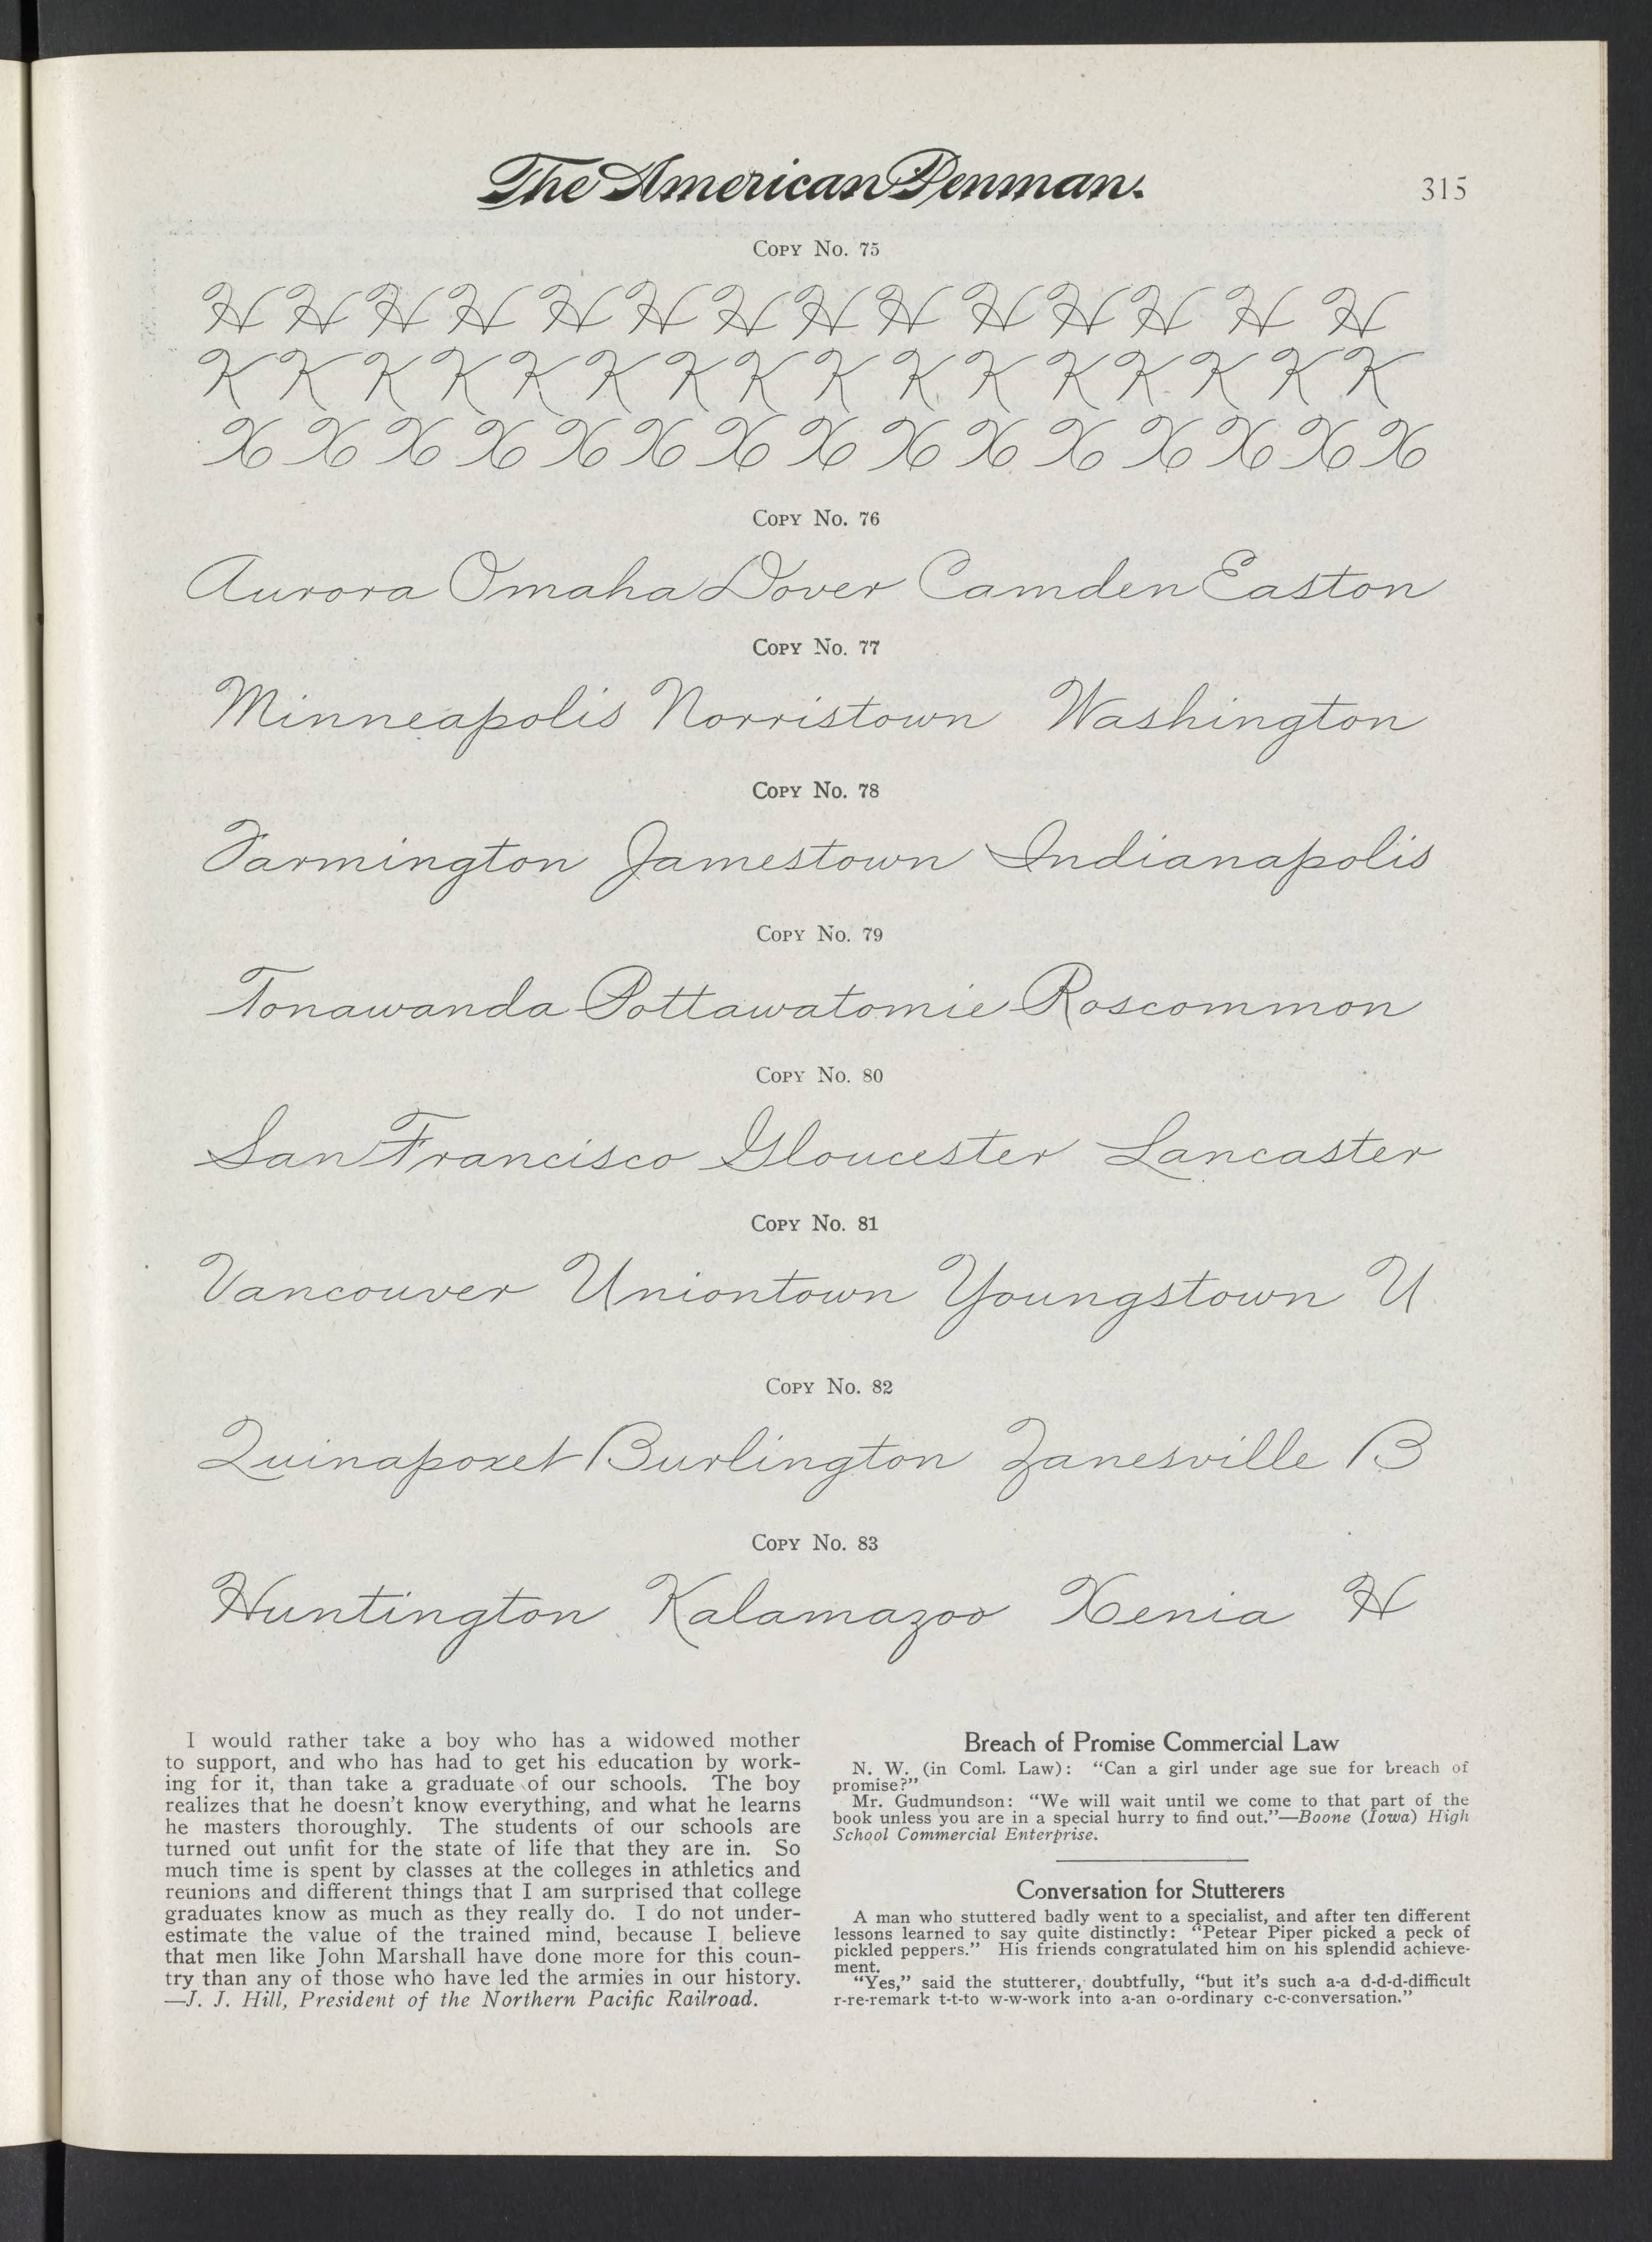 The American Penman.
315
Copy No. 75
H H H H H H H H H H H H H H
K K K K K K K K K K K K K K K
X X X X X X X X X X X X X X X
Copy No. 76
Aurora Omaha Dover Camden Easton
Copy No. 77
Minneapolis Norristown Washington
Copy No. 78
Farmington Jamestown Indianapolis
Copy No. 79
Tonawanda Pottawatomie Roscommon
Copy No. 80
San Francisco Gloucester Lancaster
Copy No. 81
Vancouver Uniontown Youngstown U
Copy No. 82
Quinapoxet Burlington Zanesville B
Copy No. 83
Huntington Kalamazoo Xenia H
I would rather take a boy who has a widowed mother
to support, and who has had to get his education by work-
ing for it, than take a graduate of our schools. The boy
realizes that he doesn't know everything, and what he learns
he masters thoroughly. The students of our schools are
turned out unfit for the state of life that they are in. So
much time is spent by classes at the colleges in athletics and
reunions and different things that I am surprised that college
graduates know as much as they really do. I do not under-
estimate the value of the trained mind, because I believe
that men like John Marshall have done more for this coun-
try than any of those who have led the armies in our history.
—J. J. Hill, President of the Northern Pacific Railroad.
Breach of Promise Commercial Law
N. W. (in Coml. Law): "Can a girl under age sue for breach of
promise?"
Mr. Gudmundson: "We will wait until we come to that part of the
book unless you are in a special hurry to find out."—Boone (Iowa) High
School Commercial Enterprise.
Conversation for Stutterers
A man who stuttered badly went to a specialist, and after ten different
lessons learned to say quite distinctly: "Petear Piper picked a peck of
pickled peppers." His friends congratulated him on his splendid achieve-
ment.
"Yes," said the stutterer, doubtfully, "but it's such a-a d-d-d-difficult
r-re-remark t-t-to w-w-work into a-an o-ordinary c-c-conversation."